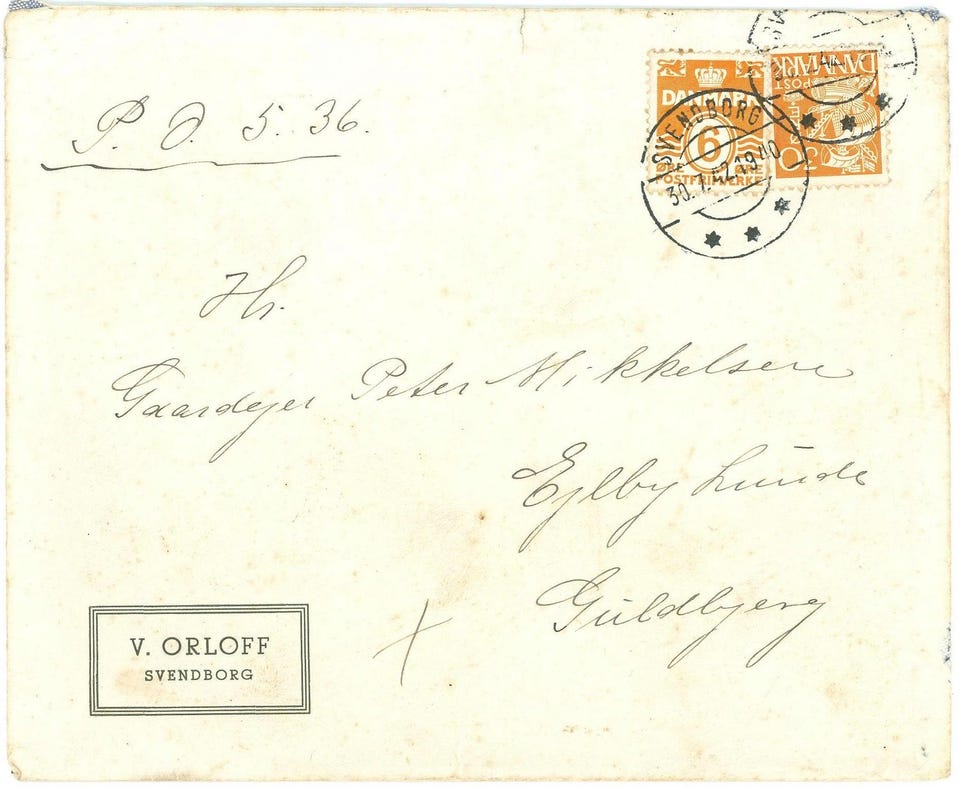 P. O. 5. 36.
DANMARK
6
ØRE ØRE
POSTFRIMÆRKE
DANMARK
POST
30
SVENDBORG
30.7.42.19-40
Hr.
Gaardejer Peter Mikkelsen
Ejlby Lunde
Guldbjerg
V. ORLOFF
SVENDBORG